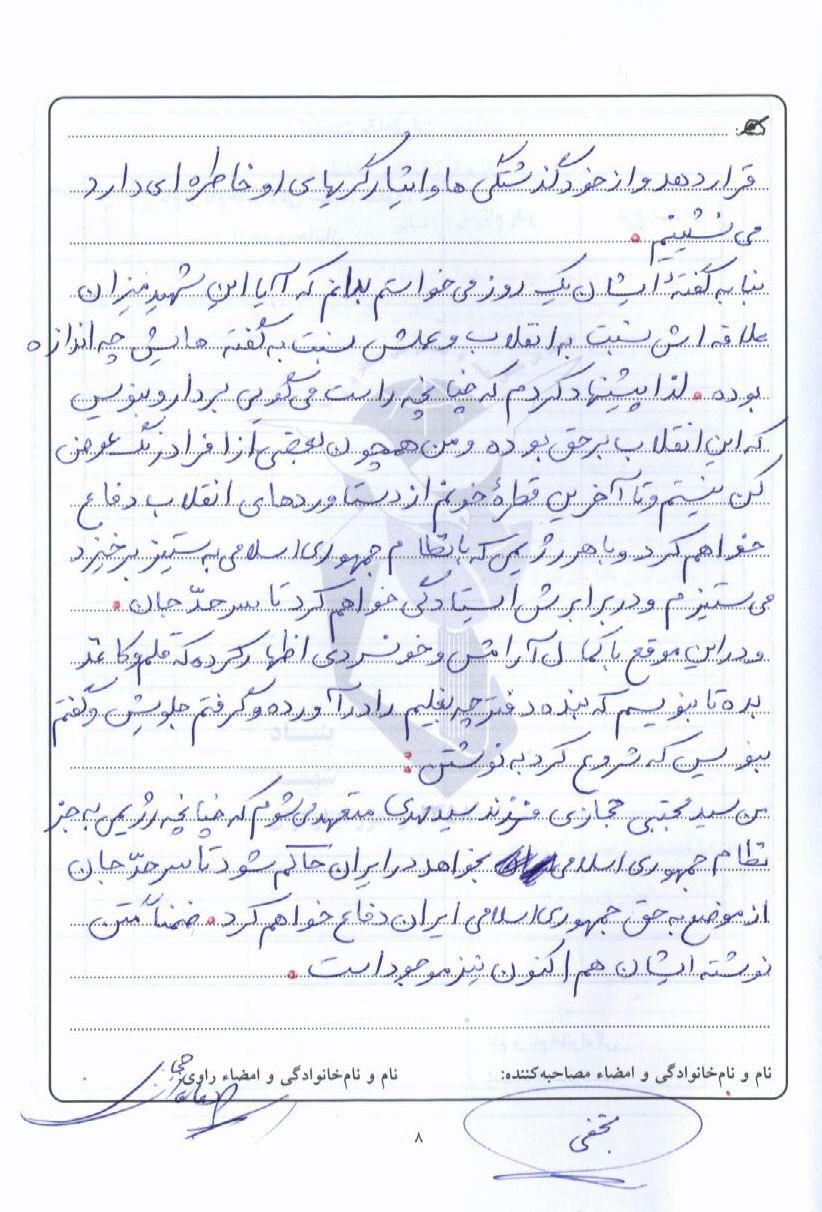 قرار دهد و از خودگذشتگی ها و ایثارگریهای او خاطره ای دارد
می نشینیم.
بنا به گفتهٔ ایشان یک روز می خواستم بدانم که آیا این شهید میزان
علاقه اش نسبت به انقلاب و عملش نسبت به گفته هایش چه اندازه
بوده. لذا پیشنهاد کردم که چنانچه راست می گویی بردار و بنویس
که این انقلاب بر حق بوده و من همچون بعضی از افراد رنگ عوض
کن نیستم و تا آخرین قطرهٔ خونم از دستاوردهای انقلاب دفاع
خواهم کرد و با هر رژیمی که با نظام جمهوری اسلامی به ستیز برخیزد
می ستیزم و در برابرش ایستادگی خواهم کرد تا سر حدّ جان.
و در این موقع با کمال آرامش و خونسردی اظهار کرده که قلم و کاغذ
بده تا بنویسم که بنده دفترچه بغلیم را درآورده و گرفتم جلویش و گفتم
بنویس که شروع کرد به نوشتن:
من سید مجتبی حجازی فرزند سید مهدی متعهد می شوم که چنانچه رژیمی به جز
نظام جمهوری اسلامی بخواهد در ایران حاکم شود تا سر حدّ جان
از موضع به حق جمهوری اسلامی ایران دفاع خواهم کرد. ضمناً متن
نوشته ایشان هم اکنون نیز موجود است.
نام و نام‌خانوادگی و امضاء مصاحبه‌کننده: نام و نام‌خانوادگی و امضاء راوی:
نجفی
۸